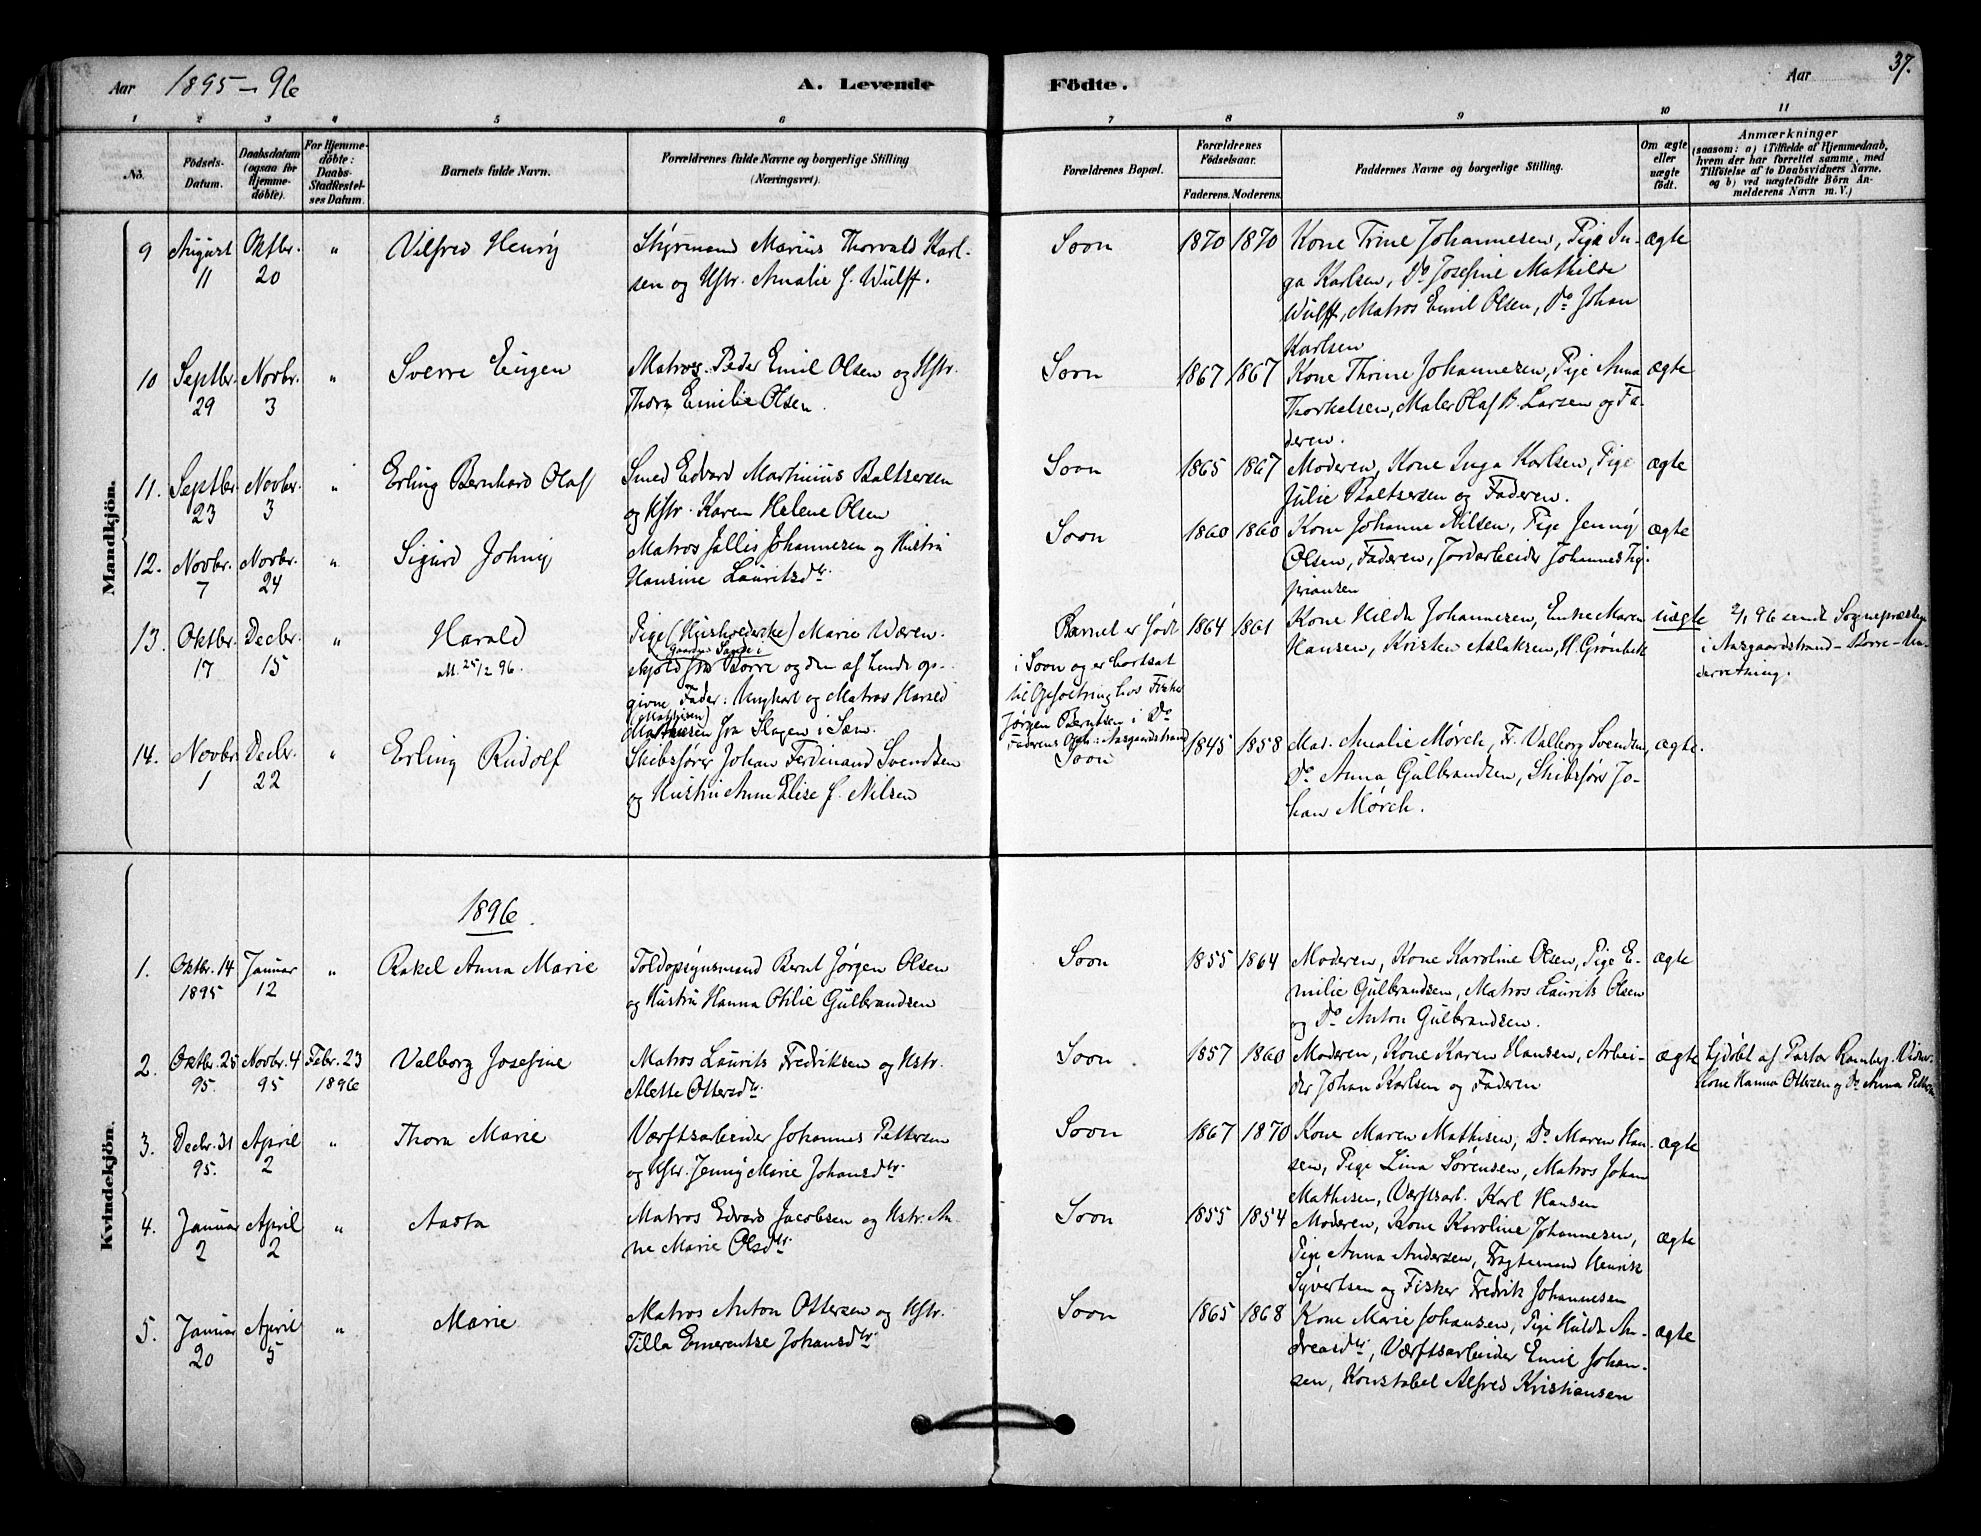 Aar 1895–96
A. Levende Födte.
Aar
37.
1 2 3 4 5 6 7 8 9 10 11
No.
Födsels-Datum.
Daabsdatum (ogsaa for Hjemmedöbte).
For Hjemmedöbte: Daabs-Stadfæstelses Datum.
Barnets fulde Navn.
Forældrenes fulde Navne og borgerlige Stilling (Næringsvei).
Forældrenes Bopæl.
Forældrenes Födselsaar.
Faderens. Moderens.
Faddernes Navne og borgerlige Stilling.
Om ægte eller uægte födt.
Anmærkninger
(saasom: a) i Tilfælde af Hjemmedaab,
hvem der har forrettet samme, med
Tilföielse af to Daabsvidners Navne,
og b) ved uægtefödte Börn Anmelderens Navn m. V.)
Mandkjön.
9 August 11 Oktbr. 20 " Vilfred Henry
Styrmand Marius Thorvald Karl-
sen og Hstr. Amalie f. Wulff.
Soon 1870 1870
Kone Trine Johannesen, Pige In-
ga Karlsen, Do Josefine Mathilde
Wulff, Matros Emil Olsen, Do Johan
Karlsen
ægte
10 Septbr. 29 Novbr. 3 " Sverre Eugen
Matros Peder Emil Olsen og Hstr.
Thora Emilie Olsen.
Soon 1867 1867
Kone Thrine Johannesen, Pige Anna
Thorkelsen, Maler Olaf B. Larsen og Fa-
deren.
ægte
11. Septbr. 23 Novbr. 3 " Erling Bernhard Olaf
Smed Edvard Martinius Baltsersen
og Hstr. Karen Helene Olsen
Soon 1865 1867
Moderen, Kone Inga Karlsen, Pige
Julie Baltsersen og Faderen.
ægte
12. Novbr. 7 Novbr. 24 " Sigurd Johny
Matros Jallis Johannesen og Hustru
Hansine Lauritsdtr.
Soon 1860 1860
Kone Johanne Nilsen, Pige Jenny
Olsen, Faderen, Jordarbeider Johannes
ægte
13. Oktbr. 17 Decbr. 15 " Harald
25/2 96.
Pige (Husholderske) Marie Waren-
skjold fra Borre og den af hende op-
givne Fader: Ungkarl og Matros Harald
(Mathisen)
fra Slagen i Sem.
Barnet er født
i Soon og er bortsat
til Opfostring hos Fisker
Jørgen Berntsen i Do
Faderens Oph: Aasgaardstrand
1864 1861
Kone Hilda Johannesen, Enke Maren
Hansen, Kristen Aslaksen, H. Grønbek
uægte
2/1 96 sendt Sognepræsten
i Aasgaardstrand – Borre – Un-
derretning.
14. Novbr. 1 Decbr. 22 " Erling Rudolf
Skibsfører Johan Ferdinand Svendsen
og Hustru Anne Elise f. Nilsen
Soon 1845 1858
Mad. Amalie Mørch, Fr. Valborg Svendsen,
Do Anna Gulbrandsen, Skibsfører Jo-
han Mørch.
ægte.
Kvindekjön.
1896.
1. Oktbr. 14 1895 Januar 12 " Rakel Anna Marie
Toldopsynsmand Bernt Jørgen Olsen
og Hustru Hanna Otilie Gulbrandsen
Soon 1855 1864
Moderen, Kone Karoline Olsen, Pige E-
milie Gulbrandsen, Matros Laurits Olsen
og Do Anton Gulbrandsen.
ægte
2. Oktbr. 25 95. Novbr. 4 95 Febr. 23 1896 Valborg Josefine
Matros Laurits Fredriksen og Hstr.
Alette Ottersdtr.
Soon. 1857 1860
Moderen, Kone Karen Hansen, Arbei-
der Johan Karlsen og Faderen
ægte
hjdøbt af Pastor Ramberg. Vidner:
Kone Hanna Ottersen og Do Anna Pettersen
3. Decbr. 31 95. April 2 " Thora Marie
Værftsarbeider Johannes Pettersen
og Hstr. Jenny Marie Johansdtr.
Soon 1867 1870
Kone Maren Mathisen, Do Maren Han-
sen, Pige Lina Sørensen, Matros Johan
Mathisen, Værftsarb. Karl Hansen
ægte
4. Januar 2 April 2 " Aasta
Matros Edvard Jacobsen og Hstr. An-
ne Marie Olsdtr.
Soon 1855 1854
Moderen, Kone Karoline Johannesen,
Pige Anna Andersen, Fragtemand Henrik
Syvertsen og Fisker Fredrik Johannesen
ægte
5. Januar 20 April 5 " Marie
Matros Anton Ottersen og Hstr.
Tilla Emerentse Johansdtr.
Soon 1865 1868
Kone Marie Johansen, Pige Hulda An-
dreasdtr, Værftsarbeider Emil Johan-
sen, Konstabel Alfred Kristiansen
ægte